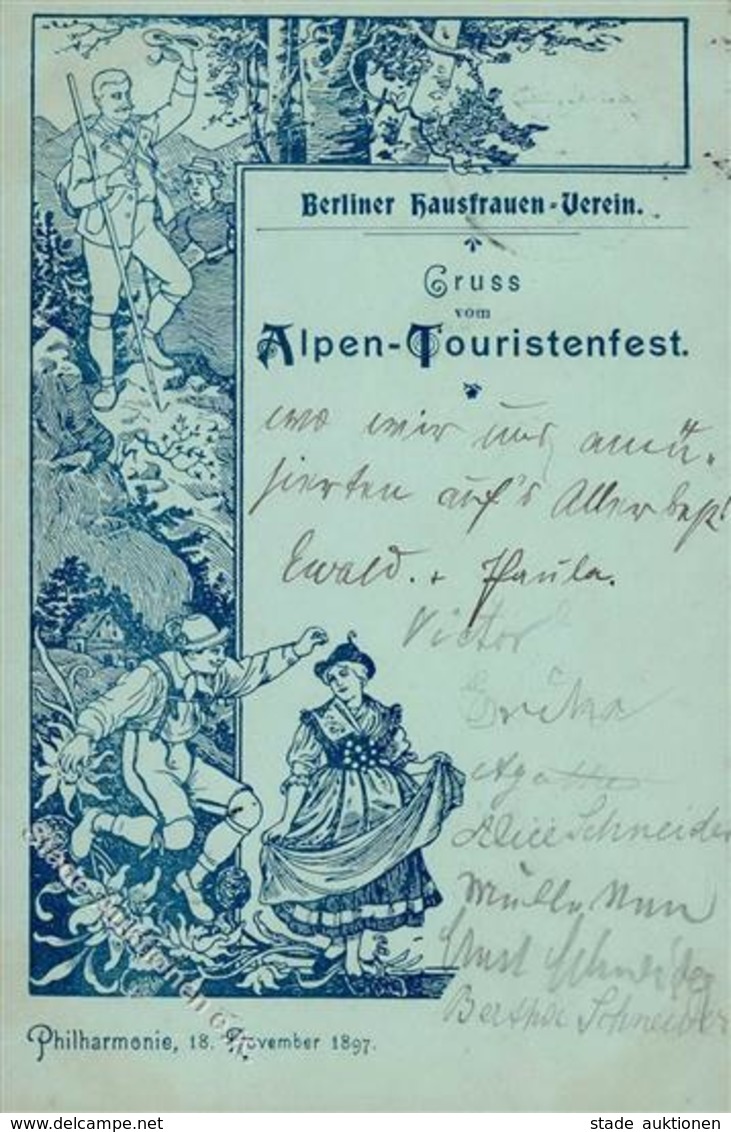 Berliner Hausfrauen-Verein.
Gruss
vom
Alpen-Touristenfest.
wo wir uns amü-
sierten auf's Allerbest!
Ewald. + Paula.
Victor
Erika
Agathe
Alice Schneider
Ernst Schneider
Bertha Schneider
Philharmonie, 18. November 1897.
stade auktionen
www.delcampe.net
stade auktionen